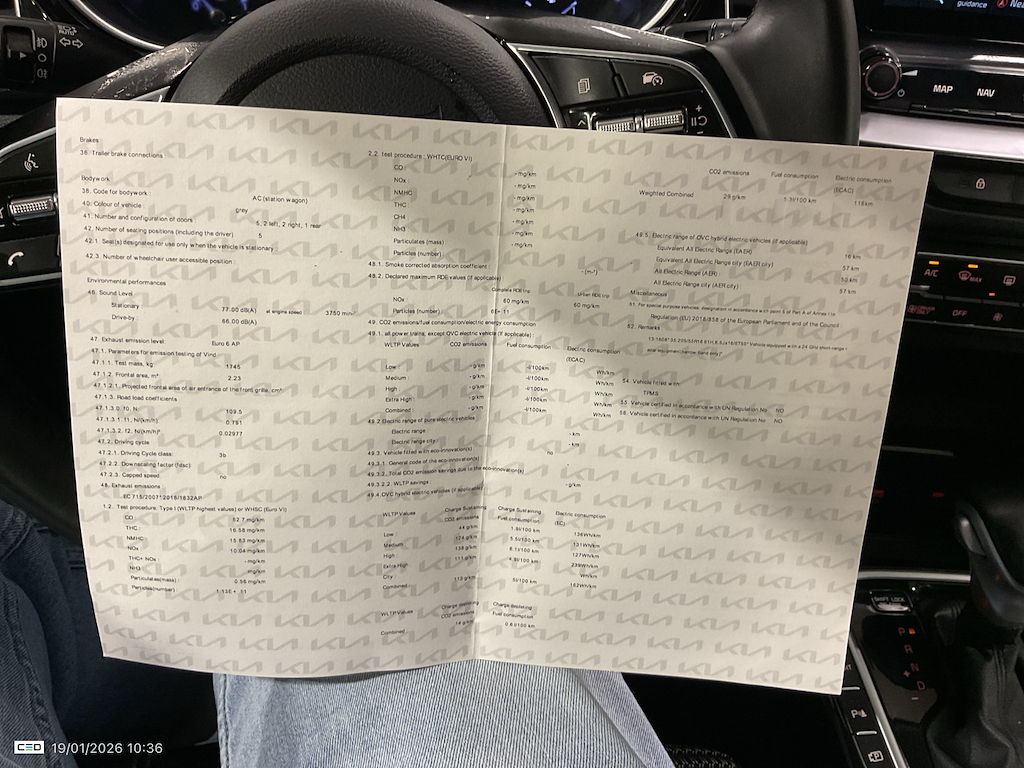 guidance
MAP
NAV
A/C
MAX
OFF
SHIFT LOCK
P
R
N
D
+
-
Brakes
36. Trailer brake connections :
Bodywork
38. Code for bodywork :
AC (station wagon)
40. Colour of vehicle :
grey
41. Number and configuration of doors :
5, 2 left, 2 right, 1 rear
42. Number of seating positions (including the driver)
5
42.1. Seat(s) designated for use only when the vehicle is stationary :
42.3. Number of wheelchair user accessible position :
Environmental performances
46. Sound Level
Stationary
77.00 dB(A)
at engine speed :
3750 min-
Drive-by
66.00 dB(A)
47. Exhaust emission level:
Euro 6 AP
47.1. Parameters for emission testing of Vind
47.1.1. Test mass, kg
1745
47.1.2. Frontal area, m²
2.23
47.1.2.1. Projected frontal area of air entrance of the front grille, cm²
47.1.3. Road load coefficients
47.1.3.0. f0, N:
109.5
47.1.3.1. f1, N/(km/h)
0.751
47.1.3.2. f2, N/(km/h)²
0.02977
47.2. Driving cycle
47.2.1. Driving Cycle class:
3b
47.2.2. Downscaling factor (fdsc)
47.2.3. Capped speed:
no
48. Exhaust emissions :
EC 715/2007*2018/1832AP
1.2. Test procedure: Type I (WLTP highest values) or WHSC (Euro VI)
CO :
THC :
16.58 mg/km
NMHC :
15.63 mg/km
NOx :
10.04 mg/km
THC+ NOx :
- mg/km
NH3 :
- mg/km
Particulates(mass) :
0.56 mg/km
Particles(number) :
2.2. Test procedure : WHTC(EURO VI)
CO :
- mg/km
NOx :
- mg/km
NMHC :
- mg/km
THC :
- mg/km
CH4
- mg/km
NH3
- mg/km
Particulates (mass)
- mg/km
Particles (number)
48.1. Smoke corrected absorption coefficient :
- (m⁻¹)
48.2. Declared maximum RDE values (if applicable)
Complete RDE trip
Urban RDE trip
NOx :
60 mg/km
60 mg/km
Particles (number) :
6E+ 11
49. CO2 emissions/fuel consumption/electric energy consumption
49.1. all power trains, except OVC electric vehicle (if applicable) :
WLTP Values
CO2 emissions
Fuel consumption
Electric consumption
(ECAC)
Low :
- g/km
-l/100km
Wh/km
Medium :
- g/km
-l/100km
Wh/km
High :
- g/km
-l/100km
Wh/km
Extra High :
- g/km
-l/100km
Wh/km
Combined :
- g/km
-l/100km
Wh/km
49.2 Electric range of pure electric vehicles
Electric range
- km
Electric range city
- km
49.3. Vehicle fitted with eco-innovation(s)
no
49.3.1. General code of the eco-innovation(s)
49.3.2. Total CO2 emission savings due to the eco-innovation(s)
49.3.2.2. WLTP savings
- g/km
49.4.OVC hybrid electric vehicles (if applicable)
WLTP Values
Charge Sustaining
CO2 emissions
Charge Sustaining
Fuel consumption
Electric consumption
(EC)
Low :
44 g/km
136Wh/km
Medium
124 g/km
131Wh/km
High
138 g/km
127Wh/km
Extra High
111 g/km
239Wh/km
City
Wh/km
Combined
113 g/km
5l/100 km
162Wh/km
WLTP Values
Charge depleting
CO2 emissions
Charge depleting
Fuel consumption
Combined
14 g/km
0.6 l/100 km
CO2 emissions
Fuel consumption
Electric consumption
(ECAC)
Weighted Combined
29 g/km
1.3l/100 km
49.5. Electric range of OVC hybrid electric vehicles (if applicable)
Equivalent All Electric Range (EAER)
Equivalent All Electric Range city (EAER city)
57 km
All Electric Range (AER)
50 km
All Electric Range city (AER city)
57 km
Miscellaneous
51. For special purpose vehicles: designation in accordance with point 5 of Part A of Annex I to
Regulation (EU) 2018/858 of the European Parliament and of the Council
52. Remarks
54. Vehicle fitted with:
TPMS
55. Vehicle certified in accordance with UN Regulation No
NO
56. Vehicle certified in accordance with UN Regulation No
NO
CEO 19/01/2026 10:36